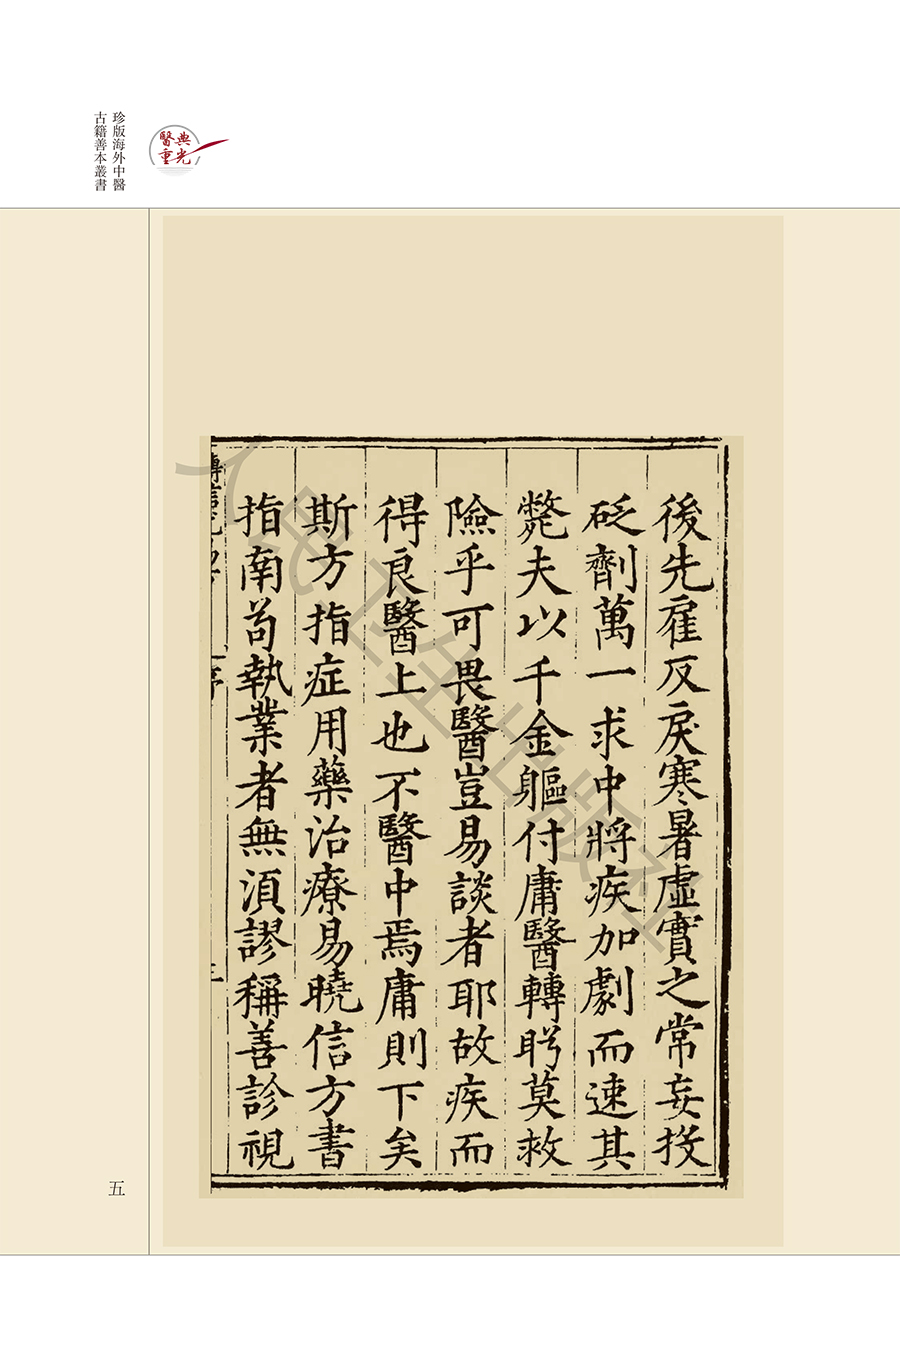 珍版海外中醫
古籍善本叢書
醫典
重光
後先雇反戾寒暑虛實之常妄投
砭劑萬一求中將疾加劇而速其
斃夫以千金軀付庸醫轉眄莫救
險乎可畏醫豈易談者耶故疾而
得良醫上也不醫中焉庸則下矣
斯方指症用藥治療易曉信方書
指南苟執業者無湏謬稱善診視
序
三
五
人民卫生出版社